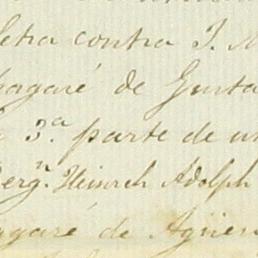 letra contra J. M
pagaré de Gusta
3.ª parte de un
Berg.n Heinrch Adolph
pagaré de Agüer